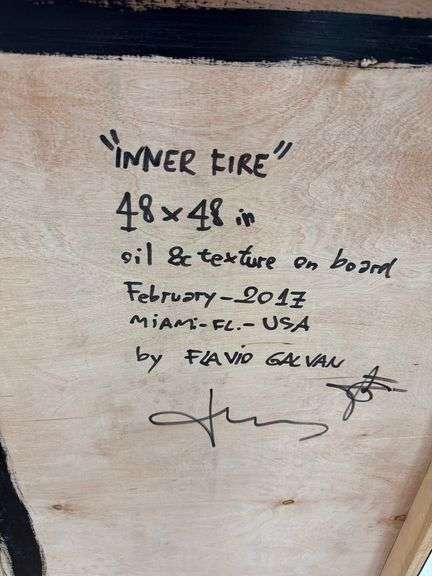 "INNER FIRE"
48 x 48 in
oil & texture on board
February-2017
MIAMI-FL.-USA
by FLAVIO GALVAN